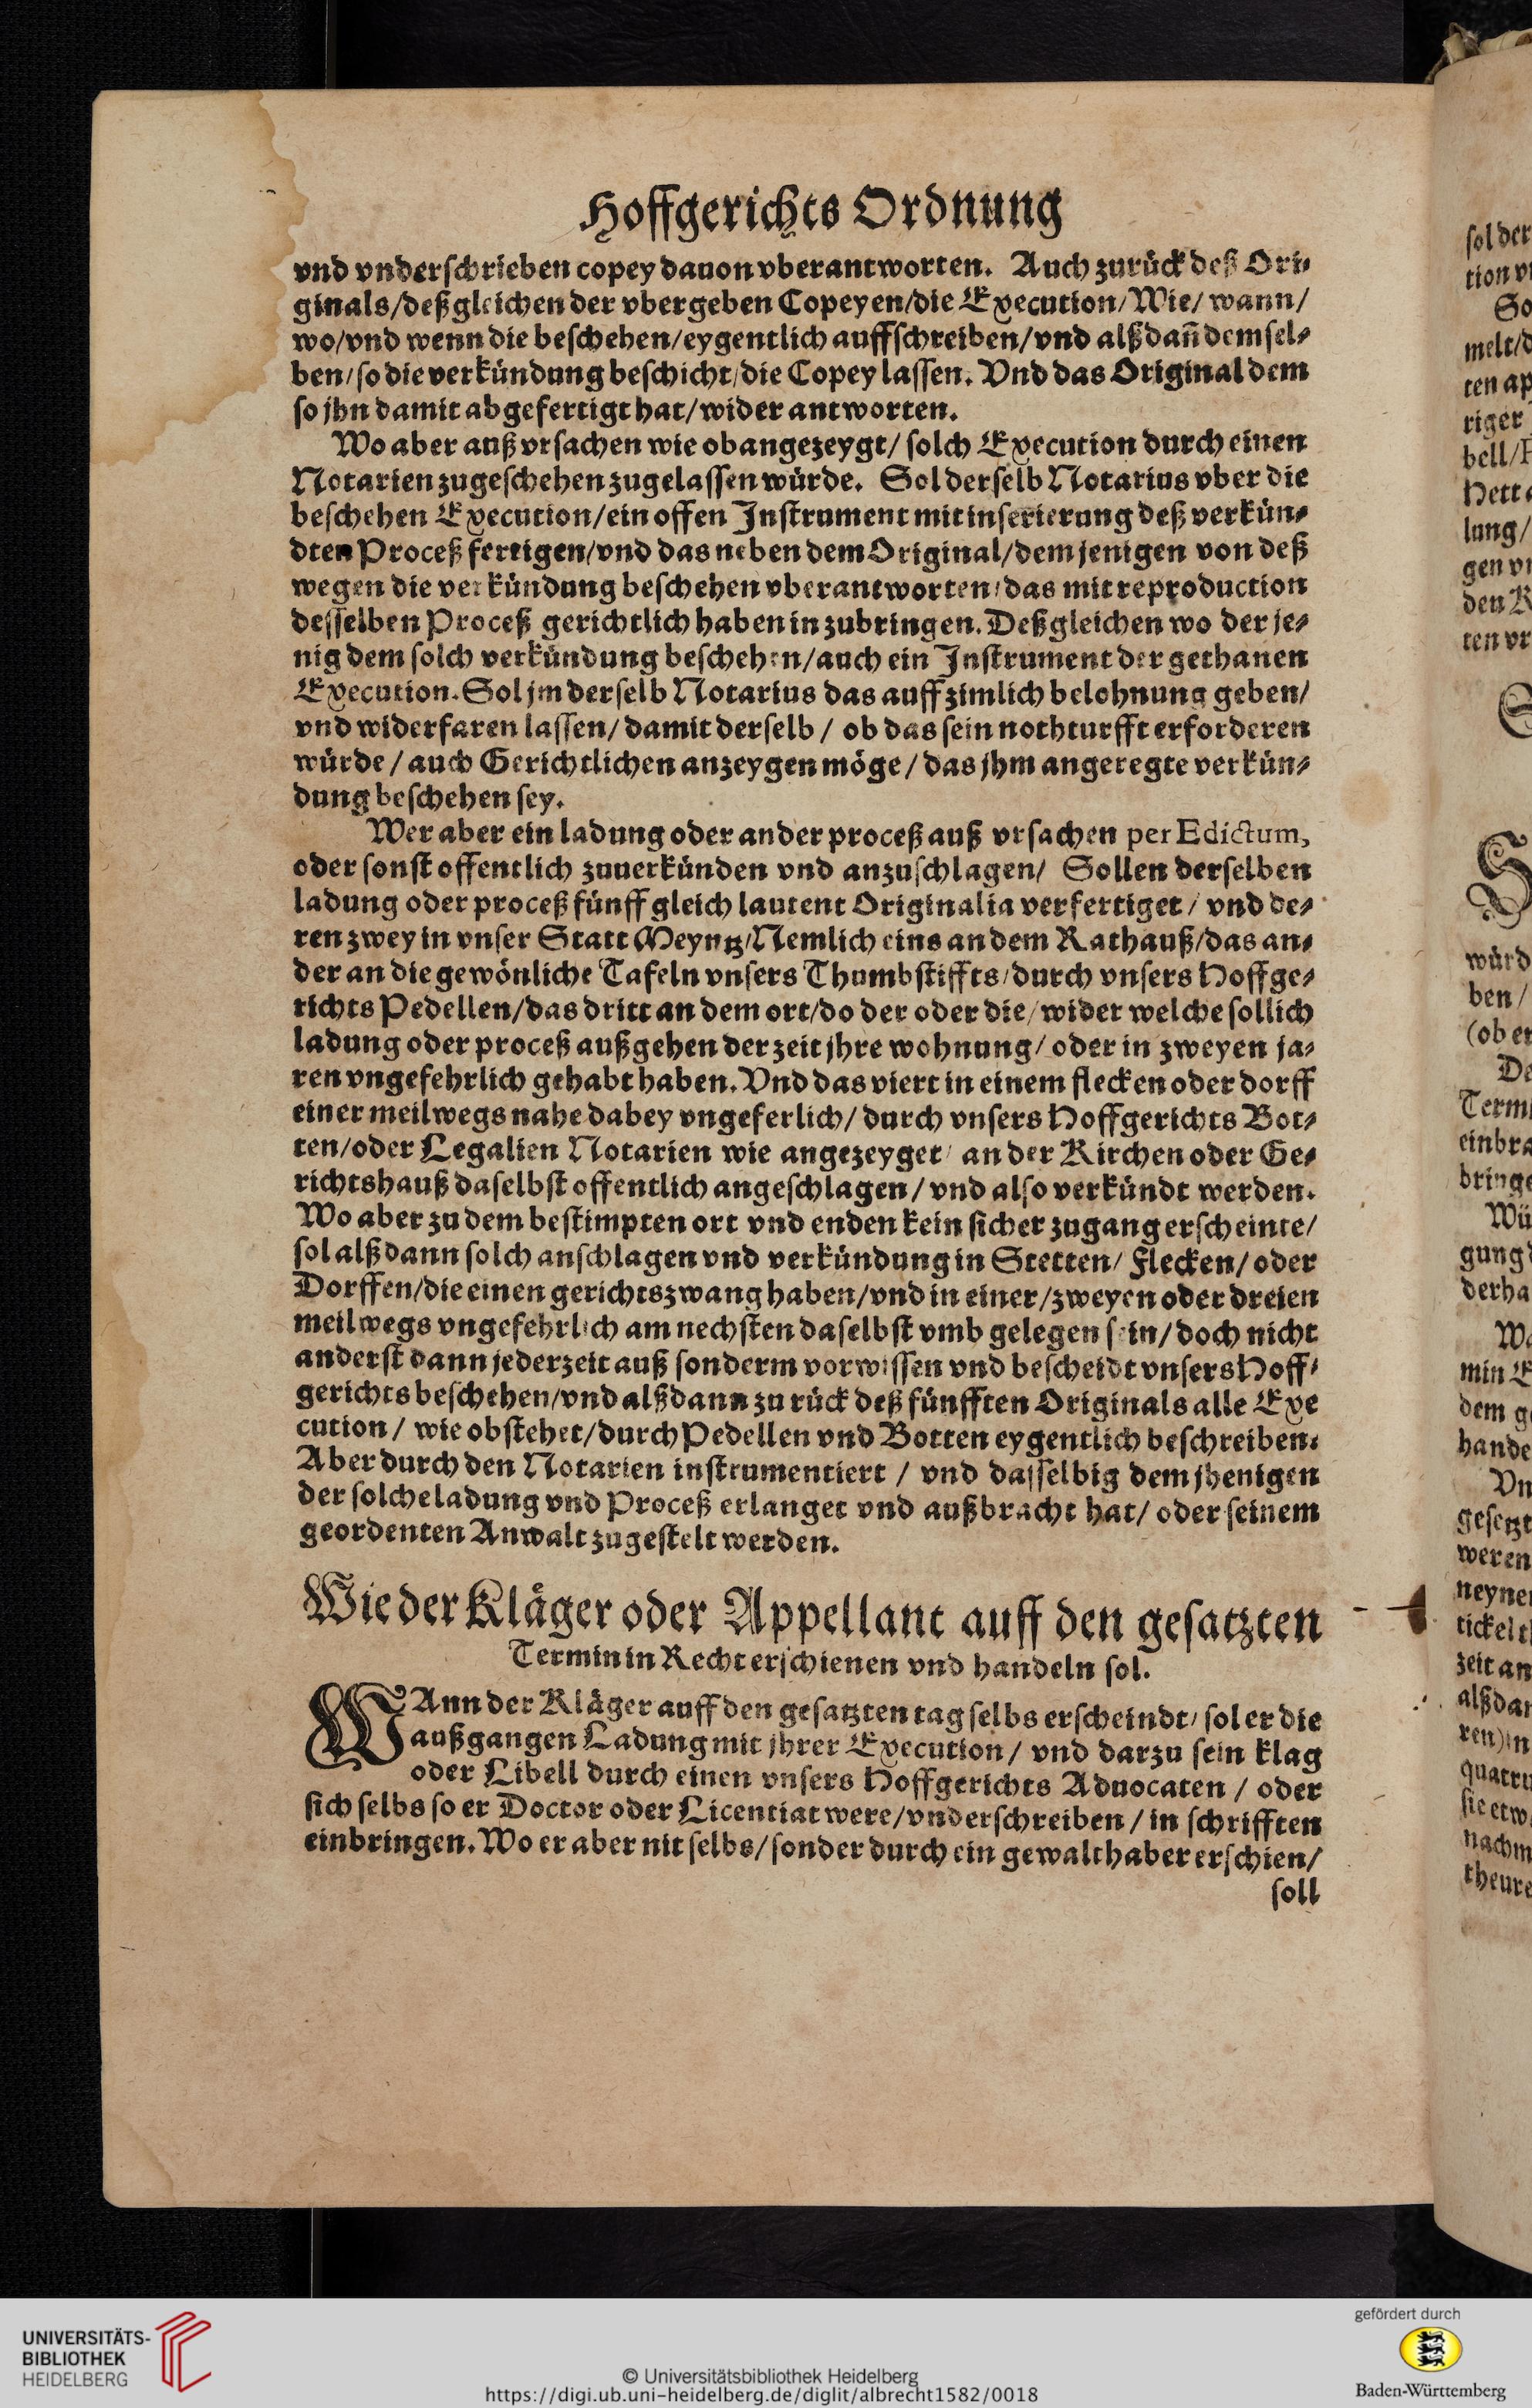 Hoffgerichts Ordnung
vnd vnderschrieben copey dauon vberantworten. Auch zurück deß Ori-
ginals/deßgleichen der vbergeben Copeyen/die Execution/Wie/wann/
wo/vnd wenn die beschehen/eygentlich auffschreiben/vnd alßdañ demsel-
ben/so die verkündung beschicht/die Copey lassen. Vnd das Original dem
so jhn damit abgefertigt hat/wider antworten.
Wo aber auß vrsachen wie obangezeygt/solch Execution durch einen
Notarien zugeschehen zugelassen würde. Sol derselb Notarius vber die
beschehen Execution/ein offen Instrument mit inserierung deß verkün-
dten Proceß fertigen/vnd das neben dem Original/dem jenigen von deß
wegen die verkündung beschehen vberantworten/das mit reproduction
desselben Proceß gerichtlich haben inzubringen. Deßgleichen wo der je-
nig dem solch verkündung beschehen/auch ein Instrument der gethanen
Execution. Sol jm derselb Notarius das auff zimlich belohnung geben/
vnd widerfaren lassen/damit derselb/ob das sein nothturfft erforderen
würde/auch Gerichtlichen anzeygen möge/das jhm angeregte verkün-
dung beschehen sey.
Wer aber ein ladung oder ander proceß auß vrsachen per Edictum,
oder sonst offentlich zuuerkünden vnd anzuschlagen/ Sollen derselben
ladung oder proceß fünff gleich lautent Originalia verfertiget/vnd de-
ren zwey in vnser Statt Meyntz/Nemlich eins an dem Rathauß/das an-
der an die gewönliche Tafeln vnsers Thumbstiffts/durch vnsers Hoffge-
richts Pedellen/das dritt an dem ort/do der oder die/wider welche sollich
ladung oder proceß außgehen der zeit jhre wohnung/oder in zweyen ja-
ren vngefehrlich gehabt haben. Vnd das viert in einem flecken oder dorff
einer meilwegs nahe dabey vngeferlich/durch vnsers Hoffgerichts Bot-
ten/oder Legalien Notarien wie angezeyget/an der Kirchen oder Ge-
richtshauß daselbst offentlich angeschlagen/vnd also verkündt werden.
Wo aber zu dem bestimpten ort vnd enden kein sicher zugang erscheinte/
sol alßdann solch anschlagen vnd verkündung in Stetten/Flecken/oder
Dorffen/die einen gerichtszwang haben/vnd in einer/zweyen oder dreien
meilwegs vngefehrlich am nechsten daselbst vmb gelegen sein/doch nicht
anderst dann jederzeit auß sonderm vorwissen vnd bescheidt vnsers Hoff-
gerichts beschehen/vnd alßdann zu rück deß fünfften Originals alle Exe
cution/wie obstehet/durch Pedellen vnd Botten eygentlich beschreiben.
Aber durch den Notarien instrumentiert/vnd dasselbig dem jhenigen
der solche ladung vnd Proceß erlanget vnd außbracht hat/oder seinem
geordenten Anwalt zugestelt werden.
Wie der Kläger oder Appellant auff den gesatzten
Termin in Recht erschienen vnd handeln sol.
WAnn der Kläger auff den gesatzten tag selbs erscheindt/sol er die
außgangen Ladung mit jhrer Execution/vnd darzu sein klag
oder Libell durch einen vnsers Hoffgerichts Aduocaten/oder
sich selbs so er Doctor oder Licentiat were/vnderschreiben/in schrifften
einbringen. Wo er aber nit selbs/sonder durch ein gewalthaber erschien/
soll
UNIVERSITÄTS-
BIBLIOTHEK
HEIDELBERG
© Universitätsbibliothek Heidelberg
https://digi.ub.uni-heidelberg.de/diglit/albrecht1582/0018
gefördert durch
Baden-Württemberg